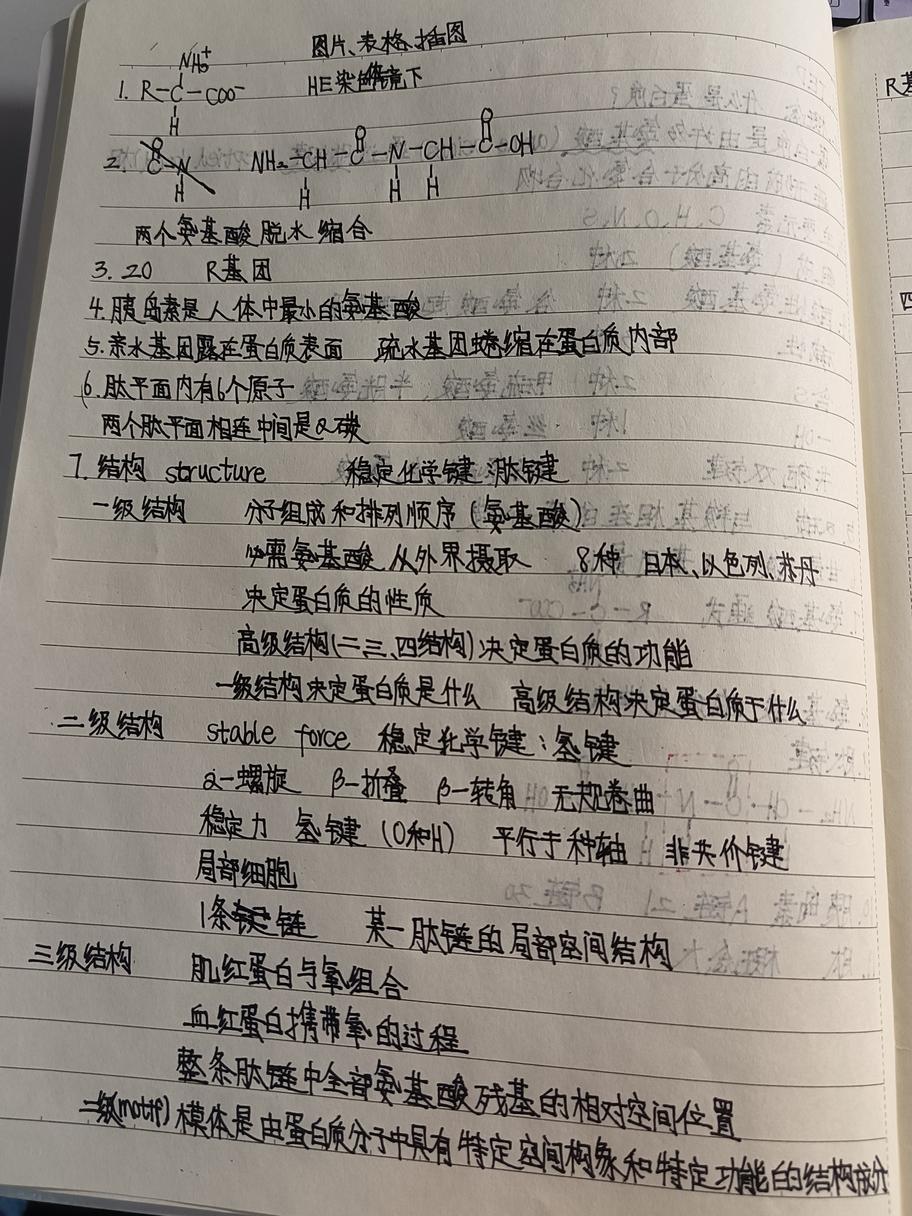 图片、表格、插图
NH₃⁺
1. R-C-COO⁻ HE染色镜下
H
O O O
2. C-N NH₂-CH-C-N-CH-C-OH
H H H H
两个氨基酸脱水缩合
3. 20 R基团
4. 胰岛素是人体中最小的氨基酸
5. 亲水基团露在蛋白质表面 疏水基团蜷缩在蛋白质内部
6. 肽平面内有6个原子
两个肽平面相连中间是α碳
7. 结构 structure 稳定化学键:肽键
一级结构 分子组成和排列顺序(氨基酸)
必需氨基酸 从外界摄取 8种 日本、以色列、丹
决定蛋白质的性质
高级结构(二、三、四结构)决定蛋白质的功能
一级结构决定蛋白质是什么 高级结构决定蛋白质干什么
二级结构 stable force 稳定化学键:氢键
α-螺旋 β-折叠 β-转角 无规卷曲
稳定力 氢键(O和H) 平行于种轴 非共价键
局部细胞
1条链 某一肽链的局部空间结构
三级结构 肌红蛋白与氧组合
血红蛋白携带氧的过程
整条肽链中全部氨基酸残基的相对空间位置
二级(motif)模体是由蛋白质分子中具有特定空间构象和特定功能的结构成分
R基
四